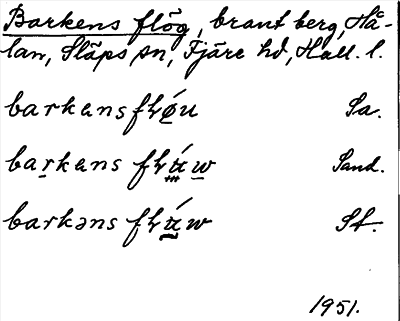 Barkens flög, brant berg, Hå-
lan, Släps sn, Fjäre hd, Hall. l.
barkens flǿu Sa.
barkens flṳ́w̲ Sand.
barkəns flú̲w St.
1951.